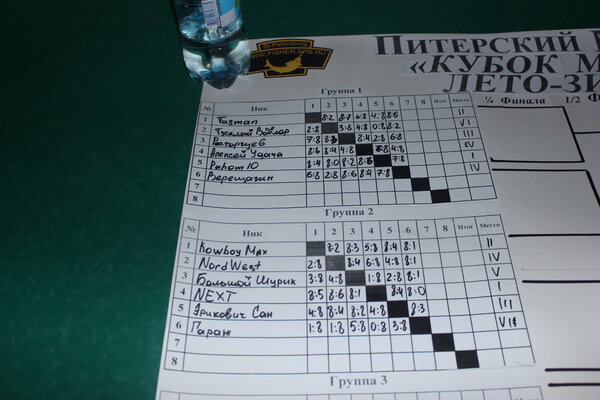 St.Petersburg
WWW.FISHER.SPB.RU
ПИТЕРСКИЙ
«КУБОК М
ЛЕТО-ЗИ
¼ Финала ½ Ф
Группа 1
№ Ник 1 2 3 4 5 6 7 8 Итог Место
1 Tasman 8:2 8:7 6:8 4:8 8:6 II
2 2:8 3:8 4:8 0:8 8:2 VI
3 7:8 8:3 8:4 2:8 6:8 III
4 Алексей Удача 8:6 8:4 4:8 4:8 IV
5 8:4 8:0 8:2 7:8 I
6 Верещагин 6:8 2:8 8:6 8:4 7:8 IV
7
8
Группа 2
№ Ник 1 2 3 4 5 6 7 8 Итог Место
1 Kowboy Max 8:2 8:3 5:8 8:4 8:1 II
2 Nord West 2:8 8:4 6:8 4:8 8:1 IV
3 Большой Шурик 3:8 4:8 1:8 2:8 8:1 V
4 NEXT 8:5 8:6 8:1 8:4 8:0 I
5 Эрикович Сан 4:8 8:4 8:2 4:8 8:3 III
6 Гараж 1:8 1:8 5:8 0:8 3:8
7
8
Группа 3